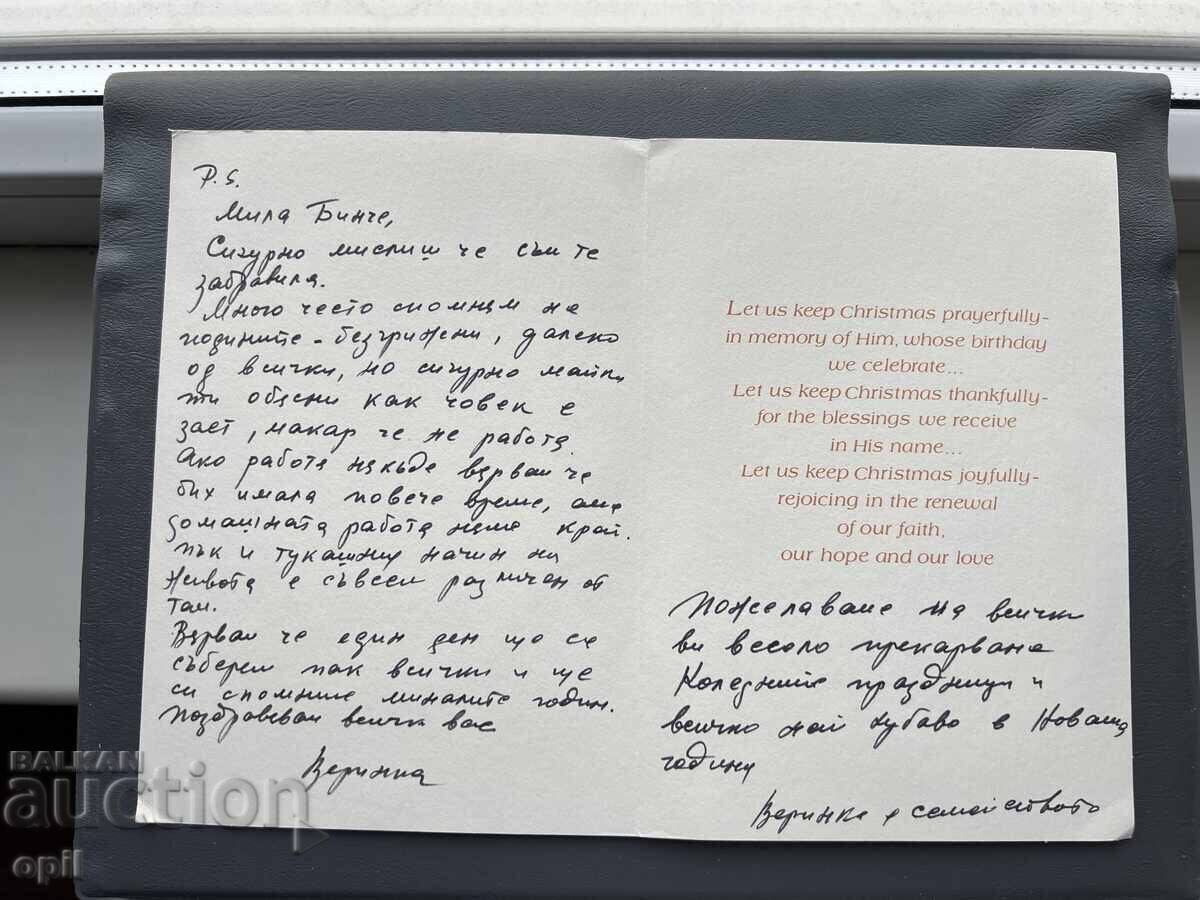 P.S.
Мила Бинче,
Сигурно мислиш че съм те
забравила.
Много често спомням на
годините - безгрижени, далеко
од всички, но сигурно майка
ти обясни как човек е
зает, макар че не работа.
Ако работа някъде вярвам че
бих имала повече време, ама
домашната работа няма край.
пък и тукашния начин на
живота е съвсем различен от
там.
Вярвам че един ден ще се
съберем пак всички и ще
си спомниме миналите годин.
Поздравевам всички вас
Веринка
Let us keep Christmas prayerfully-
in memory of Him, whose birthday
we celebrate...
Let us keep Christmas thankfully-
for the blessings we receive
in His name...
Let us keep Christmas joyfully-
rejoicing in the renewal
of our faith,
our hope and our love
Пожелаваме на всички
ви весело прекарване
Коледните празници и
всичко най хубаво в Новата
години
Веринка и семейството
BALKAN
auction
opil